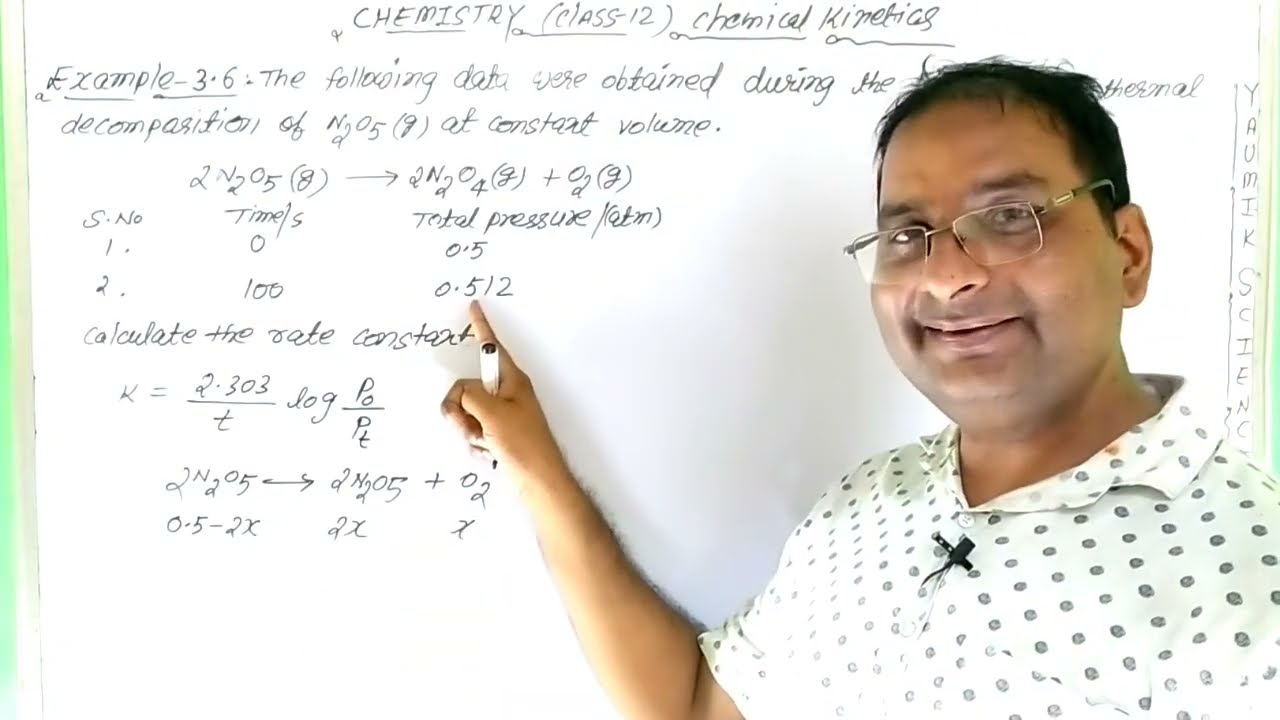 CHEMISTRY (CLASS-12) chemical Kinetics
Example-3.6: The following data were obtained during the thermal
decomposition of N2O5(g) at constant volume.
2N2O5(g) → 2N2O4(g) + O2(g)
S.No Time/s Total pressure/(atm)
1. 0 0.5
2. 100 0.512
Calculate the rate constant
K = 2.303/t log P0/Pt
2N2O5 → 2N2O5 + O2
0.5-2x 2x x
YAUMIK SCIENC